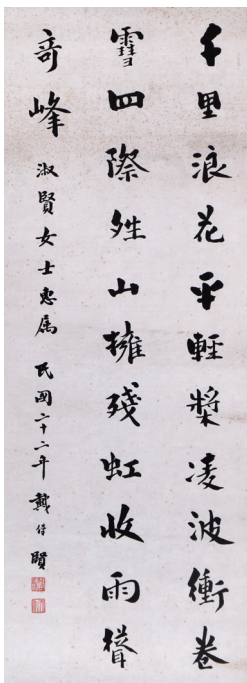 千里浪花平輕槳凌波衝卷
雪四際姓山擁殘虹收雨聳
奇峰 淑賢女士惠属 民國二十二年 戴传賢